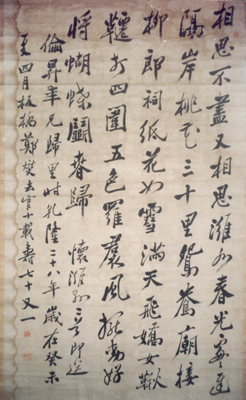 相思不盡又相思濰水春光處處遲
隔岸桃花三十里鴛鴦廟接
柳郎祠紙花如雪滿天飛嬌女鞦
韆打四圍五色羅裙風擺動好
將蝴蝶鬥春歸 懷濰縣二首即送
倫昇年兄歸里時乾隆二十八年歲在癸未
夏四月板橋鄭燮去官十載壽七十又一